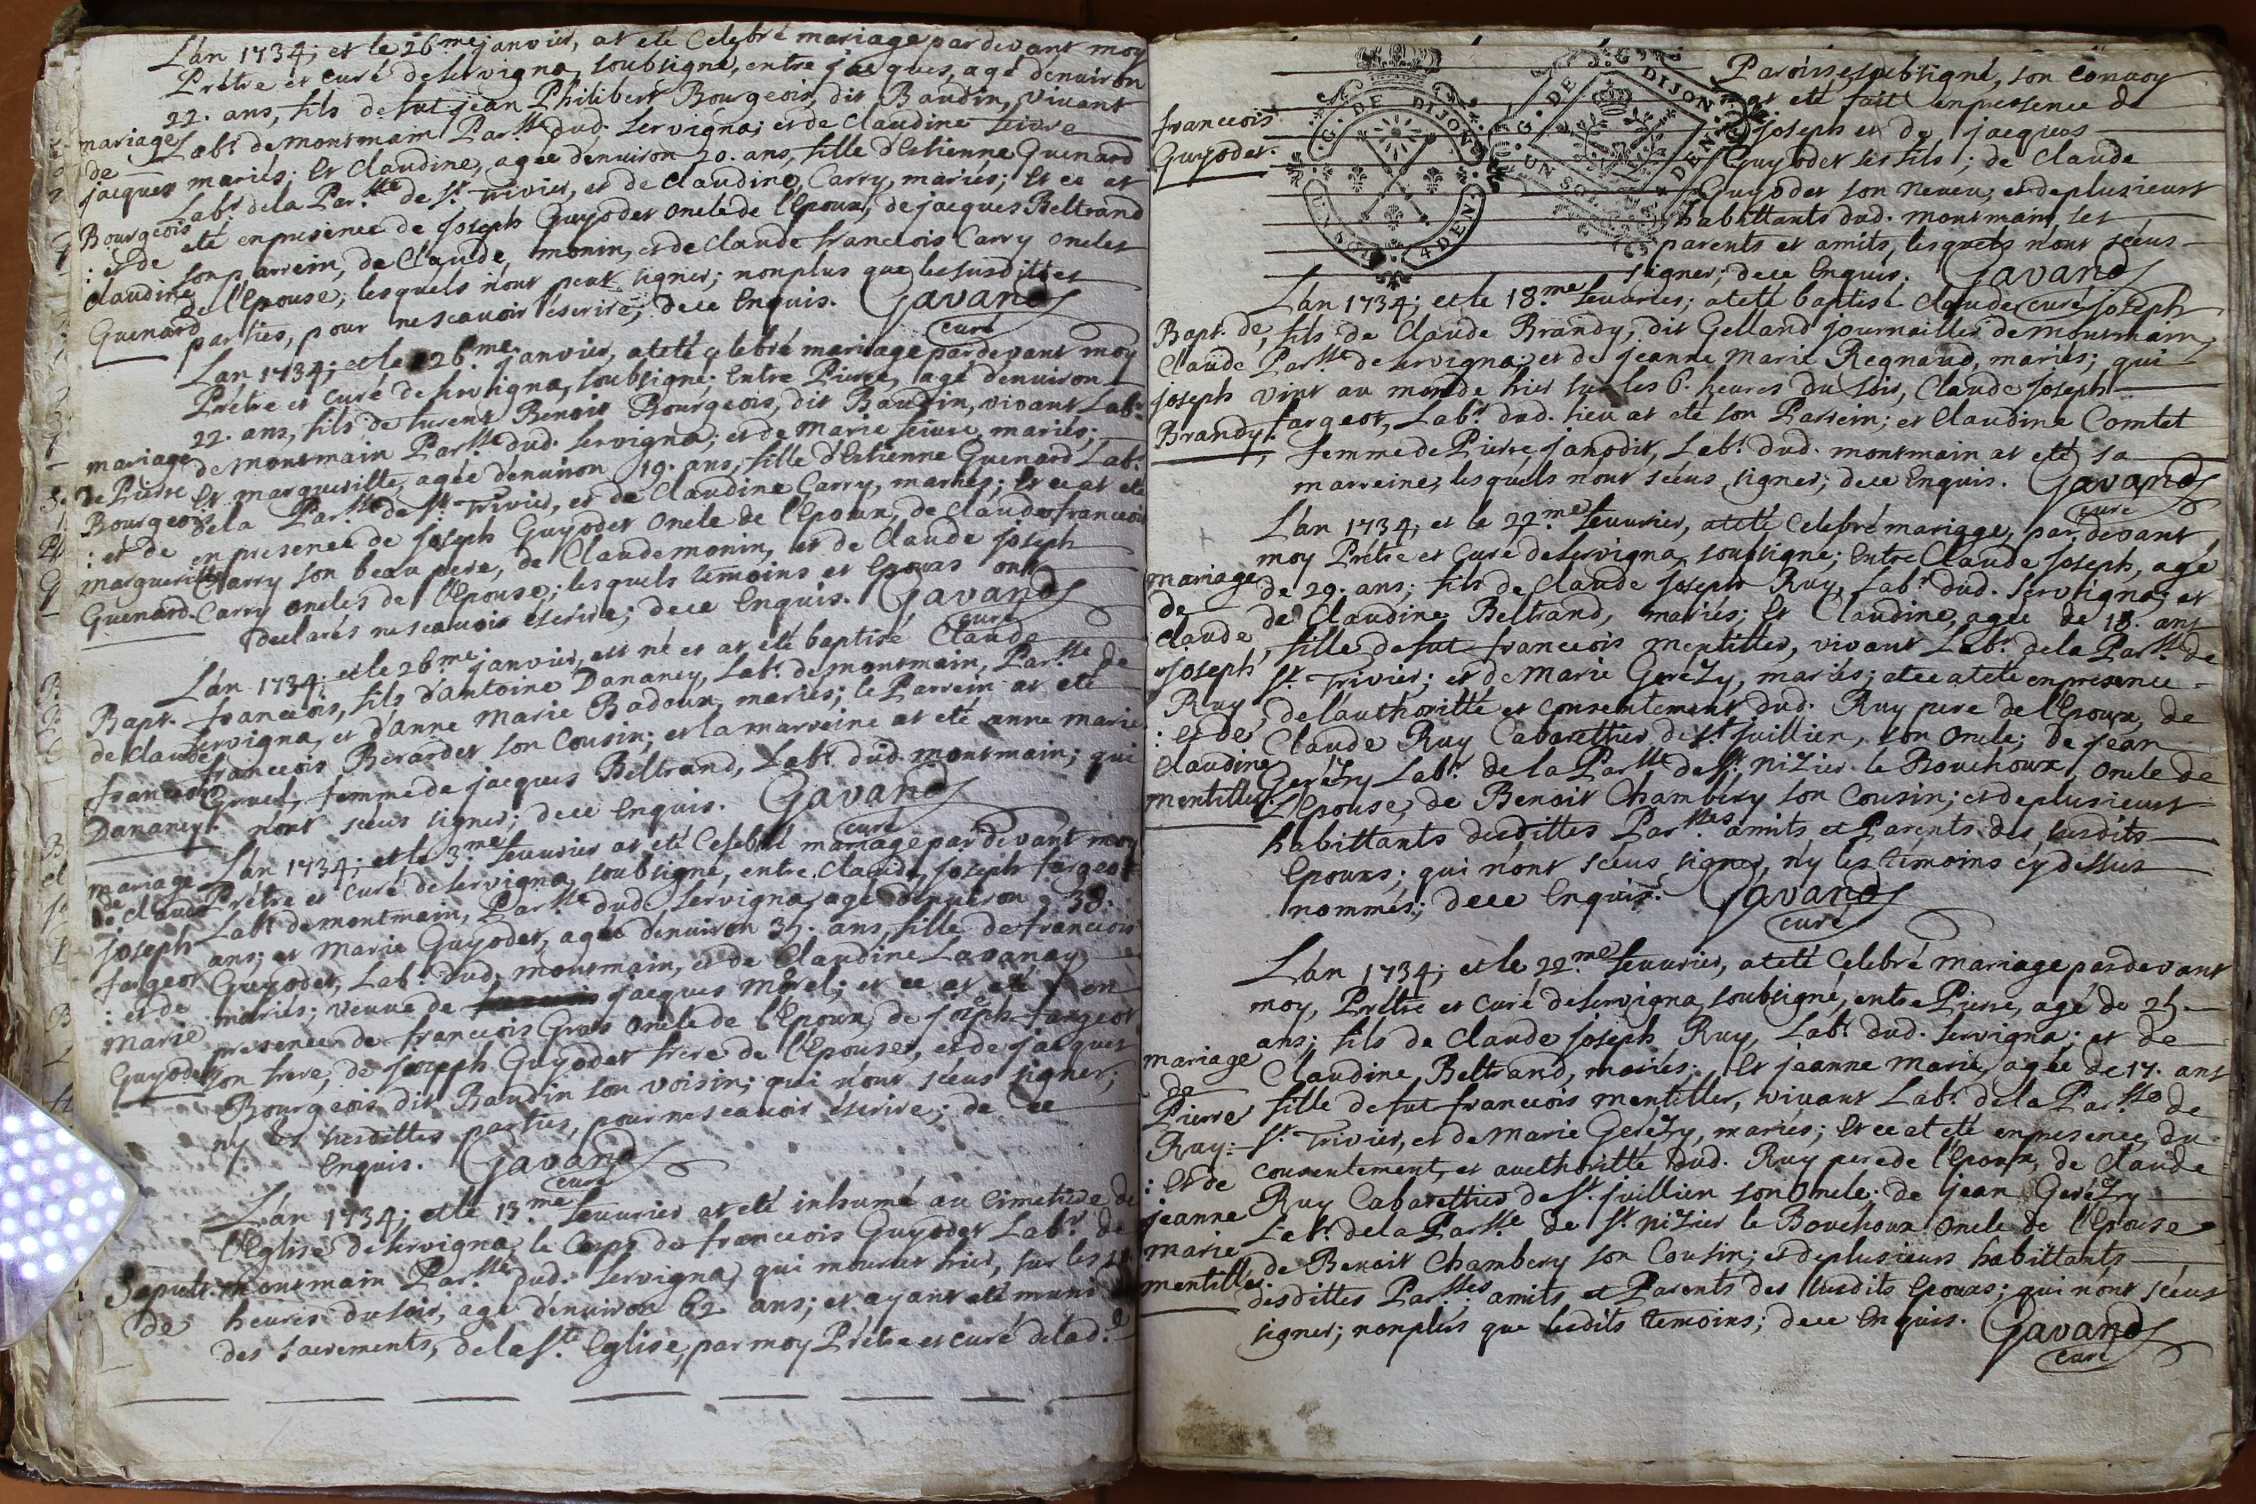 L'an 1734; et le 26.me janvier, at eté Celebré mariage par devant moy
Prétre et Curé de Servigna, soubsigné, entre jacques, agé d'enuiron
22. ans, fils de fut jean Philibert Bourgeois, dit Baudin, vivant
mariage Lab.r de montmain Par.sse dud. Servigna; et de Claudine
de
jacques mariés; Et Claudine, agée d'enuiron 20. ans, fille d'Estienne Guenard
Bourgeois Lab.r de la Par.sse de S.t Trivier, et de Claudine Carry, mariés; Et ce at
: et de eté enpresence de Joseph Guyodet oncle de l'Epoux, de jacques Beltrand
Claudine son parrein, de Claude monin, et de Claude francois Carry oncles
Guenard de l'Epouse; lesquels n'ont peut signer; nonplus que les susdittes
parties, pour ne scavoir éscrire; dece Enquis. Gavand
curé
L'an 1734; et le 26.me janvier, at eté Celebré mariage par devant moy
Prétre et Curé de Servigna, soubsigné; Entre Pierre, agé d'enuiron
22. ans, fils de furent Benoit Bourgeois, dit Baudin, vivant Lab.r
mariage de montmain Par.sse dud. Servigna; et de Marie mariés;
de Pierre Et marguerille, agée d'enuiron 19. ans, fille d'Estienne Guenard Lab.r
Bourgeois de la Par.sse de S.t Trivier, et de Claudine Carry, mariés; Et ce at eté
: et de en presence de Joseph Guyodet Oncle de l'Epoux, de Claude francois
marguerille Carry son beau pere, de Claude monin, et de Claude joseph
Guenard. Carry oncles de l'Epouse; lesquels témoins et Epouxs ont
declarés ne scauoir éscrire; dece Enquis. Gavand
curé
L'an 1734; et le 26.me janvier, est né et at eté baptisé Claude
Bapt. francois, fils d'antoine Dananey, Lab.r de montmain, Par.sse de
de Claude Servigna, et d'anne Marie Badoux, mariés; le Parrein at eté
francois francois Berardet son Cousin; et la marreine at eté anne marie
Dananey. femme de jacques Beltrand, Lab.r dud. montmain; qui
n'ont sceus signer; dece Enquis. Gavand
curé
L'an 1734; et le 3.me feuurier at eté Celebré mariage par devant moy
mariage Prétre et Curé de Servigna, soubsigné, entre Claude Joseph fargeot
de Claude Lab.r de montmain, Par.sse dud. Servigna, agé d'enuiron 38.
joseph ans; et Marie Guyodet, agée d'enuiron 35. ans, fille de francois
fargeot Guyodet, Lab.r dud. montmain, et de Claudine Lavanay
: et de mariés; veuve de jacques Morel; et ce at eté en
Marie presence de francois Gras oncle de l'Epoux, de Joseph fargeot
Guyodet son frere, de Joseph Guyodet frere de l'Epouse, et de jacques
Bourgeois dit Baudin son voisin; qui n'ont sceus signer;
ny les susdittes parties, pour ne scauoir éscrire; de ce
Enquis. Gavand
curé
L'an 1734; et le 13.me feuurier at eté inhumé au Cimetiere de
l'Eglise de Servigna, le Corps de francois Guyodet Lab.r de
Sepult. montmain Par.sse dud. Servigna, qui mourut hier, sur les
de heures du soir, agé d'enuiron 62 ans; et ayant eté muni
des sacrements, de la S.te Eglise, par moy Prétre et curé de lad.
Paroisse soubsigné, son Convoy
francois at eté fait enpresence de
Guyodet. joseph et de jacques
Guyodet ses fils; de Claude
Guyodet son neveu; et deplusieurs
habittants dud. montmain, ses
parents et amits, lesquels n'ont sceus
signer; dece Enquis. Gavand
curé
L'an 1734; et le 18.me feuurier; at eté baptisé Claude joseph
Bapt. de, fils de Claude Brandy, dit Gelland journailler de montmain,
Claude Par.sse de Servigna; et de jeanne Marie Regnaud, mariés; qui
joseph vint au monde hier sur les 6. heures du soir, Claude Joseph
Brandy. fargeot, Lab.r dud. lieu at eté son Parrein; et Claudine Comtet
femme de Pierre janodit, Lab.r dud. montmain at eté sa
marreine, lesquels n'ont sceus signer; dece Enquis. Gavand
curé
L'an 1734; et le 22.me feuurier, at eté Celebré mariage, par devant
moy Prétre et Curé de Servigna, soubsigné; Entre Claude Joseph, agé
mariage de 29. ans; fils de Claude Joseph Ruy, Lab.r dud. Servigna; et
de de Claudine Beltrand, mariés; Et Claudine, agée de 18. ans
Claude, fille de fut francois mentiller, vivant Lab.r de la Par.sse de
joseph S.t Trivier; et de Marie Gerézy, mariés; et ce at eté enpresence
Ruy, de l'authoritté et consentement dud. Ruy pere de l'Epoux, de
: et de Claude Ruy Cabarettier de S.t juillien, son oncle; de jean
Claudine Gerézry Lab.r de la Par.sse de S.t nizier le Bouchoux, oncle de
mentiller. l'Epouse, de Benoit Chambery son Cousin; et deplusieurs
habittants desdittes Par.sses amits et Parents des susdits
Epouxs; qui n'ont sceus signer, n'y les témoins cy dessus
nommés; dece Enquis. Gavand
curé
L'an 1734; et le 22.me feuurier, at eté Celebré mariage par devant
moy, Prétre et Curé de Servigna, soubsigné, entre Pierre, agé de 25.
ans; fils de Claude joseph Ruy, Lab.r dud. Servigna; et de
mariage Claudine Beltrand, mariés; Et jeanne Marie, agée de 17. ans
de
Pierre fille de fut francois mentiller, vivant Lab.r de la Par.sse de
Ruy: S.t Trivier, et de Marie Gerézy, mariés; Et ce at eté enpresence, du
: Et de consentement, et aucthoritté dud. Ruy pere de l'Epoux, de Claude
jeanne Ruy Cabarettier de S.t juillien son oncle; de jean Gerézry
marie Lab.r de la Par.sse de S.t nizier le Bouchoux oncle de l'Epouse
mentiller. de Benoit Chambery son Cousin; et deplusieurs habittants
desdittes Par.sses; amits et Parents des susdits Epouxs; qui n'ont sceus
signer; nonplus que lesdits témoins; dece Enquis. Gavand
curé
G. DE DIJON
4 DEN
G. DE DIJON
UN SOL
DEN